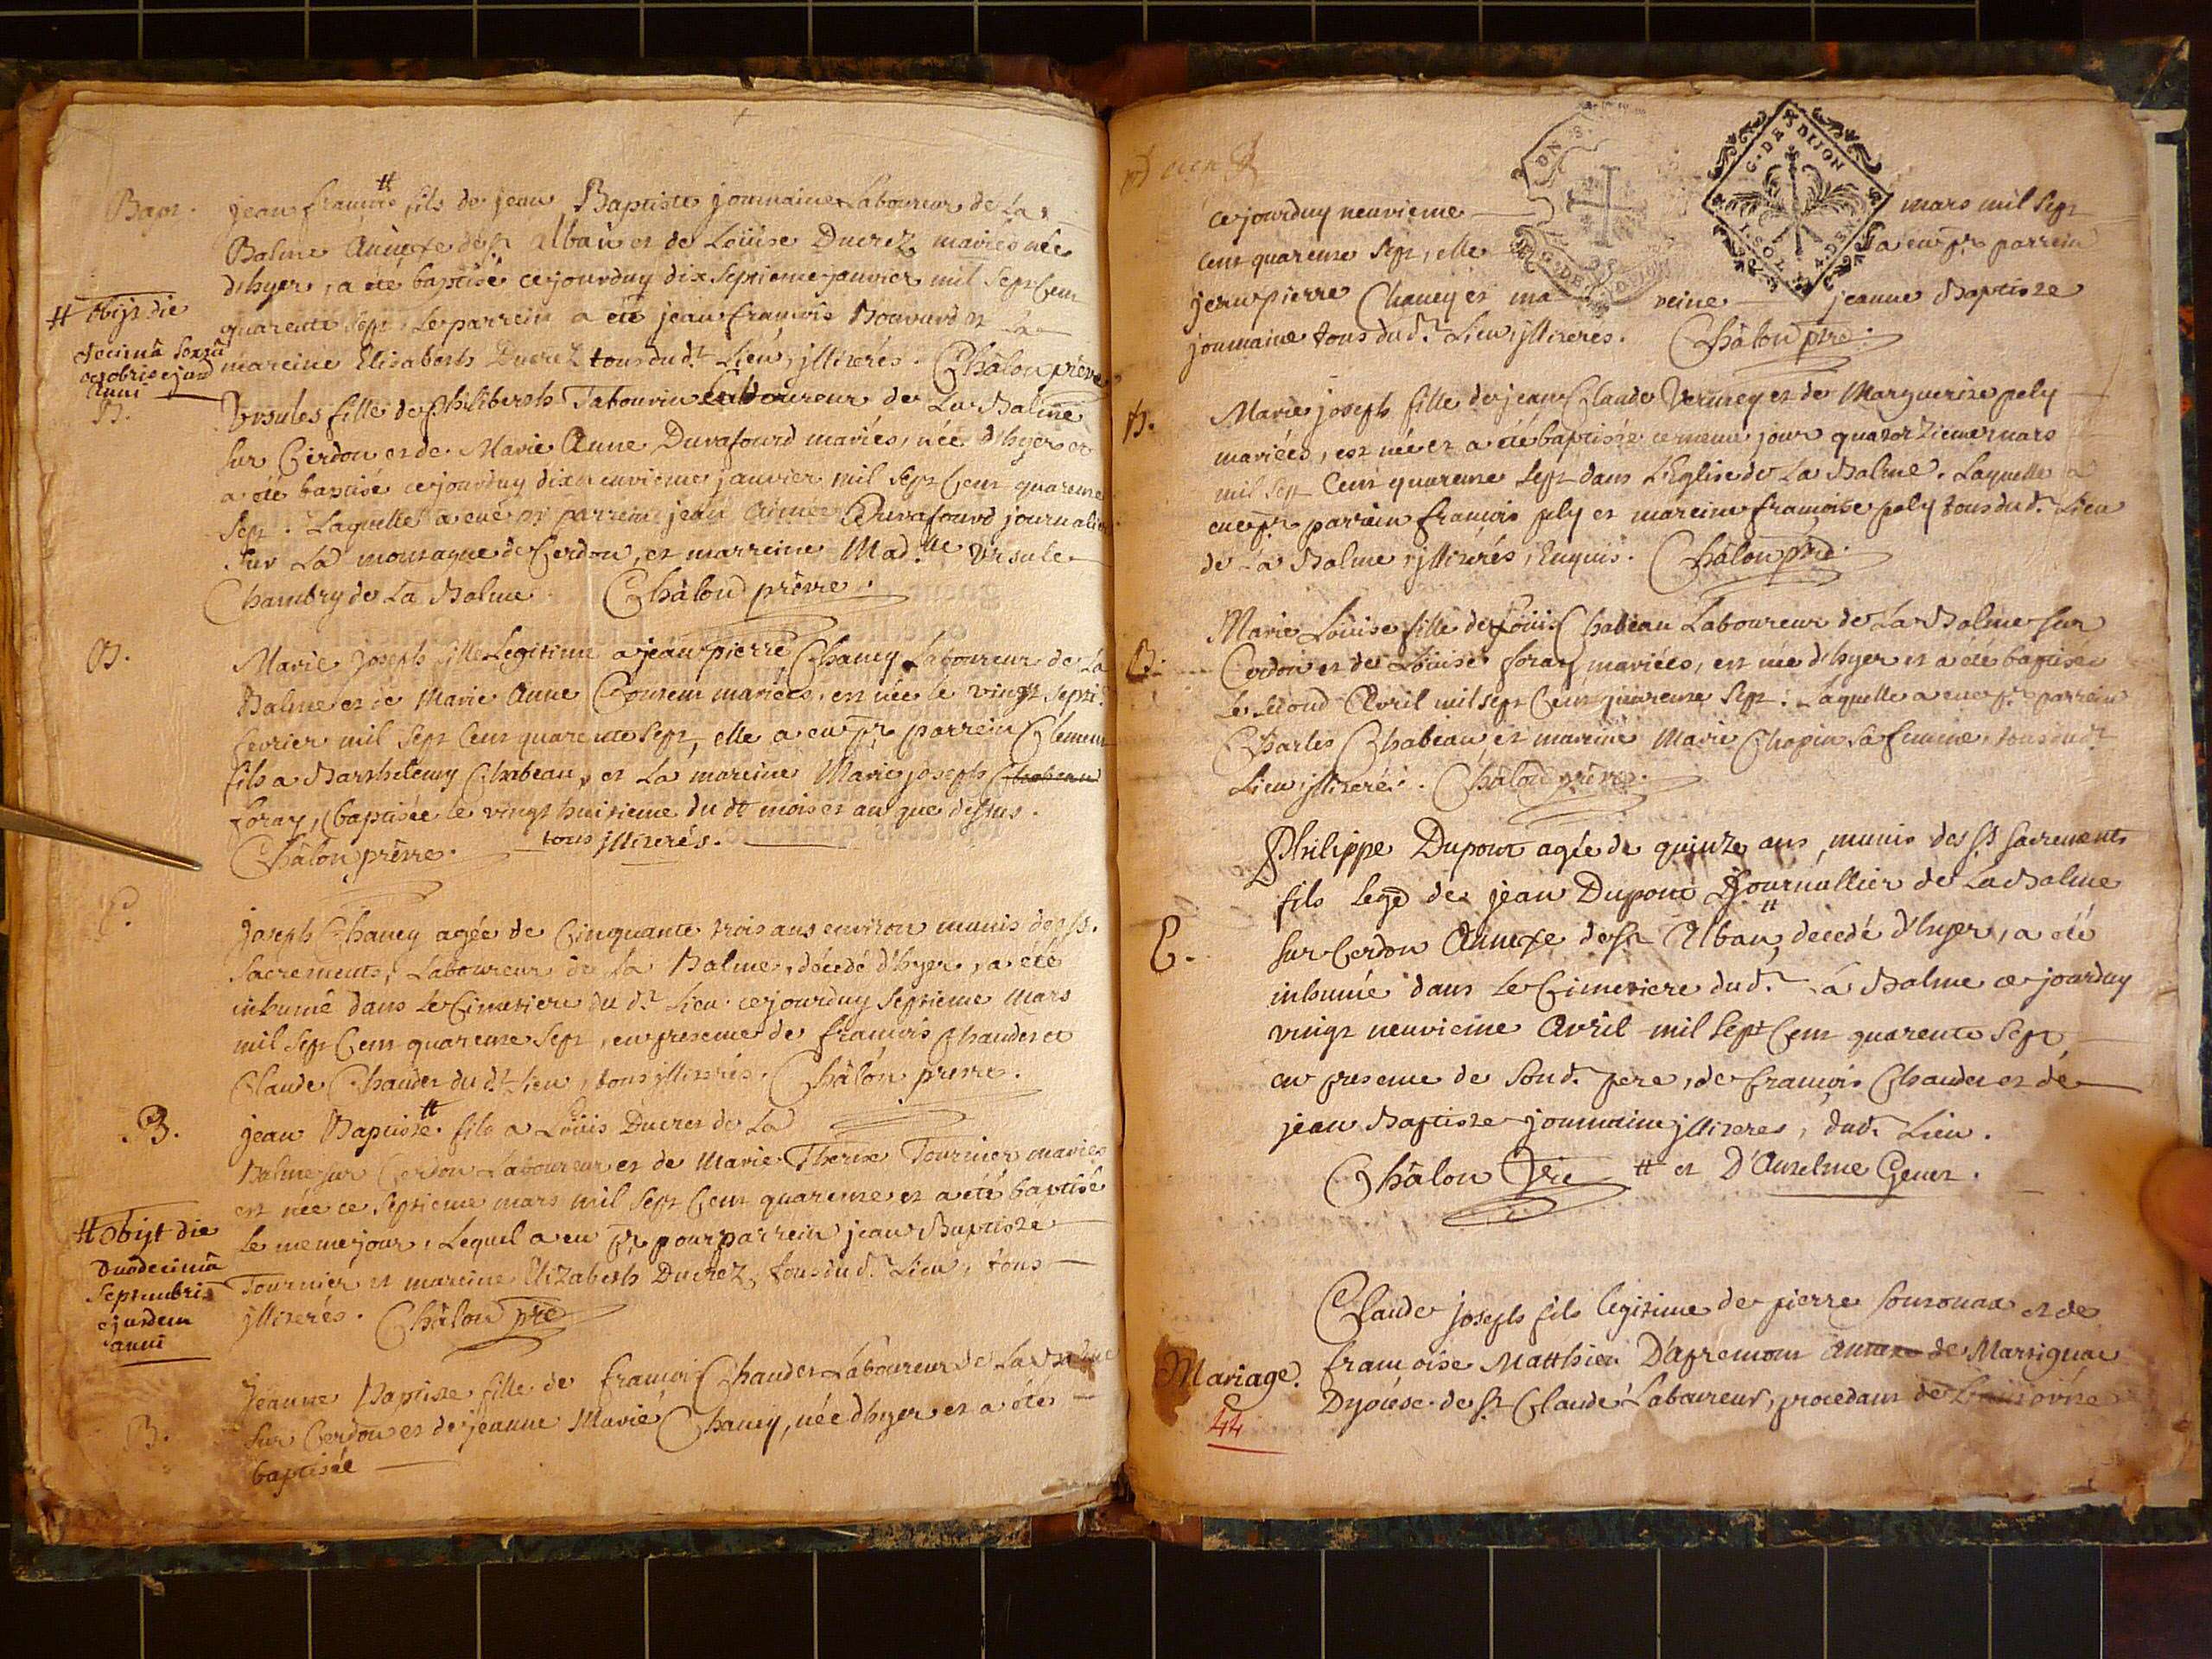 Bapt.
jean francois # fils de jean Baptiste jommaine Laboureur de La
Balme Annexe de st alban et de Loüise Ducrez mariés née
d'hyer, a été baptisé cejourduy dix septieme janvier mil sept Cent
quarente sept. Le parrein a été jean francois Bouvard et La
mareine Elisabeth Ducrez tous du dt Lieu, jllitérés. Châlon prêtre
# obijt die
decimâ sextâ
octobris ejusd
Anni
B.
Ursules fille de philiberth Tabourin Laboureur de La Balme
sur Cerdon et de Marie Anne Durafourd mariés, née d'hyer et
a été baptisé cejourduy dixneuvieme janvier mil sept Cent quarente
sept. Laquelle a eué pr parrein jean Aimée Durafourd journalier
sur La montagne de Cerdon, et marreine Mad.lle Ursule
Chambry de La Balme. Châlon prêtre.
B.
Marie Joseph fille Legitime a jean pierre Chaney Laboureur de La
Balme et de Marie Anne Couteur mariées, est née le vingt septi.
fevrier mil sept Cent quarente sept, elle a eu pr parrein Clement
fils a Barthelemy Chabeau, et La mareine Marie joseph Chabeau
foray, (baptisée le vingt huitieme du dt mois et an que dessus.
Châlon prêtre. tous jllitérés.
E.
joseph Chaney agée de Cinquante trois ans environ munis des ss.
sacrements, Laboureur de La Balme, décedé d'hyer, a été
inhumé dans Le Cimetiere du dt Lieu cejourduy septieme Mars
mil sept Cent quarente sept, en presence de francois Chaudet et
Claude Chaudet du dt Lieu, tous jllitérés. Châlon prêtre.
.B.
jean Baptiste # fils a Loüis Ducret de La
Balme sur Cerdon Laboureur et de Marie Therese Tournier mariés
est née ce septieme mars mil sept Cent quarente et a été baptisé
Le meme jour. Lequel a eu pr pour parrein jean Baptiste
Tournier et mareine Elizabeth Ducrez, tous du dt Lieu, tous
jllitérés. Châlon ptre
# obijt die
duodecimâ
Septembris
ejusdem
anni
B.
Jeanne Baptiste fille de francois Chaudet Laboureur de La Balme
sur Cerdon et de jeanne Marie Chaney, née d'hyer et a été
baptisée
cejourduy neuvieme mars mil sept
Cent quarente sept, elle a eu pr parrein
jean pierre Chaney et ma reine jeanne Baptiste
joumaine tous du dt Lieu, jllitérés. Châlon ptre.
G. DE DIJON
B.
Marie joseph fille de jean Claude Verney et de Marguerite pely
mariées, est née et a été baptisée ce meme jour quatorzieme mars
mil sept Cent quarente sept dans L'Eglise de La Balme. Laquelle a
eue pr parrein francois pely et mareine francoise pely tous du dt Lieu
de La Balme, jllitérés, Enquis. Châlon ptre.
B.
Marie Loüise fille de Loüis Chabeau Laboureur de La Balme sur
Cerdon et de Loüise foray mariées, est née d'hyer et a été baptisée
Le second Avril mil sept Cent quarente sept. Laquelle a eue pr parrein
Charles Chabeau et mareine Marie Chapin sa femme, tous du dt
Lieu jllitérés. Châlon prêtre.
E.
Philippe Dupont agée de quinze ans, munis des ss sacrements
fils Legé de jean Dupont Journallier de La Balme
sur Cerdon Annexe de st Alban, # decedé d'hyer, a été
inhumé dans Le Cimetiere du dt La Balme ce jourduy
vingt neuvieme Avril mil sept Cent quarente sept,
en presence de son d. pere, de francois Chaudet et de
jean Baptiste joummaine jllitéres, dud. Lieu.
Châlon Ptre # et D'Anselme Genet.
Mariage.
44
Claude joseph fils legitime de pierre sonthonax et de
francoise Matthieu D'apremont Annexe de Martignac
Dyoiese de st Claude Laboureur, procedant de